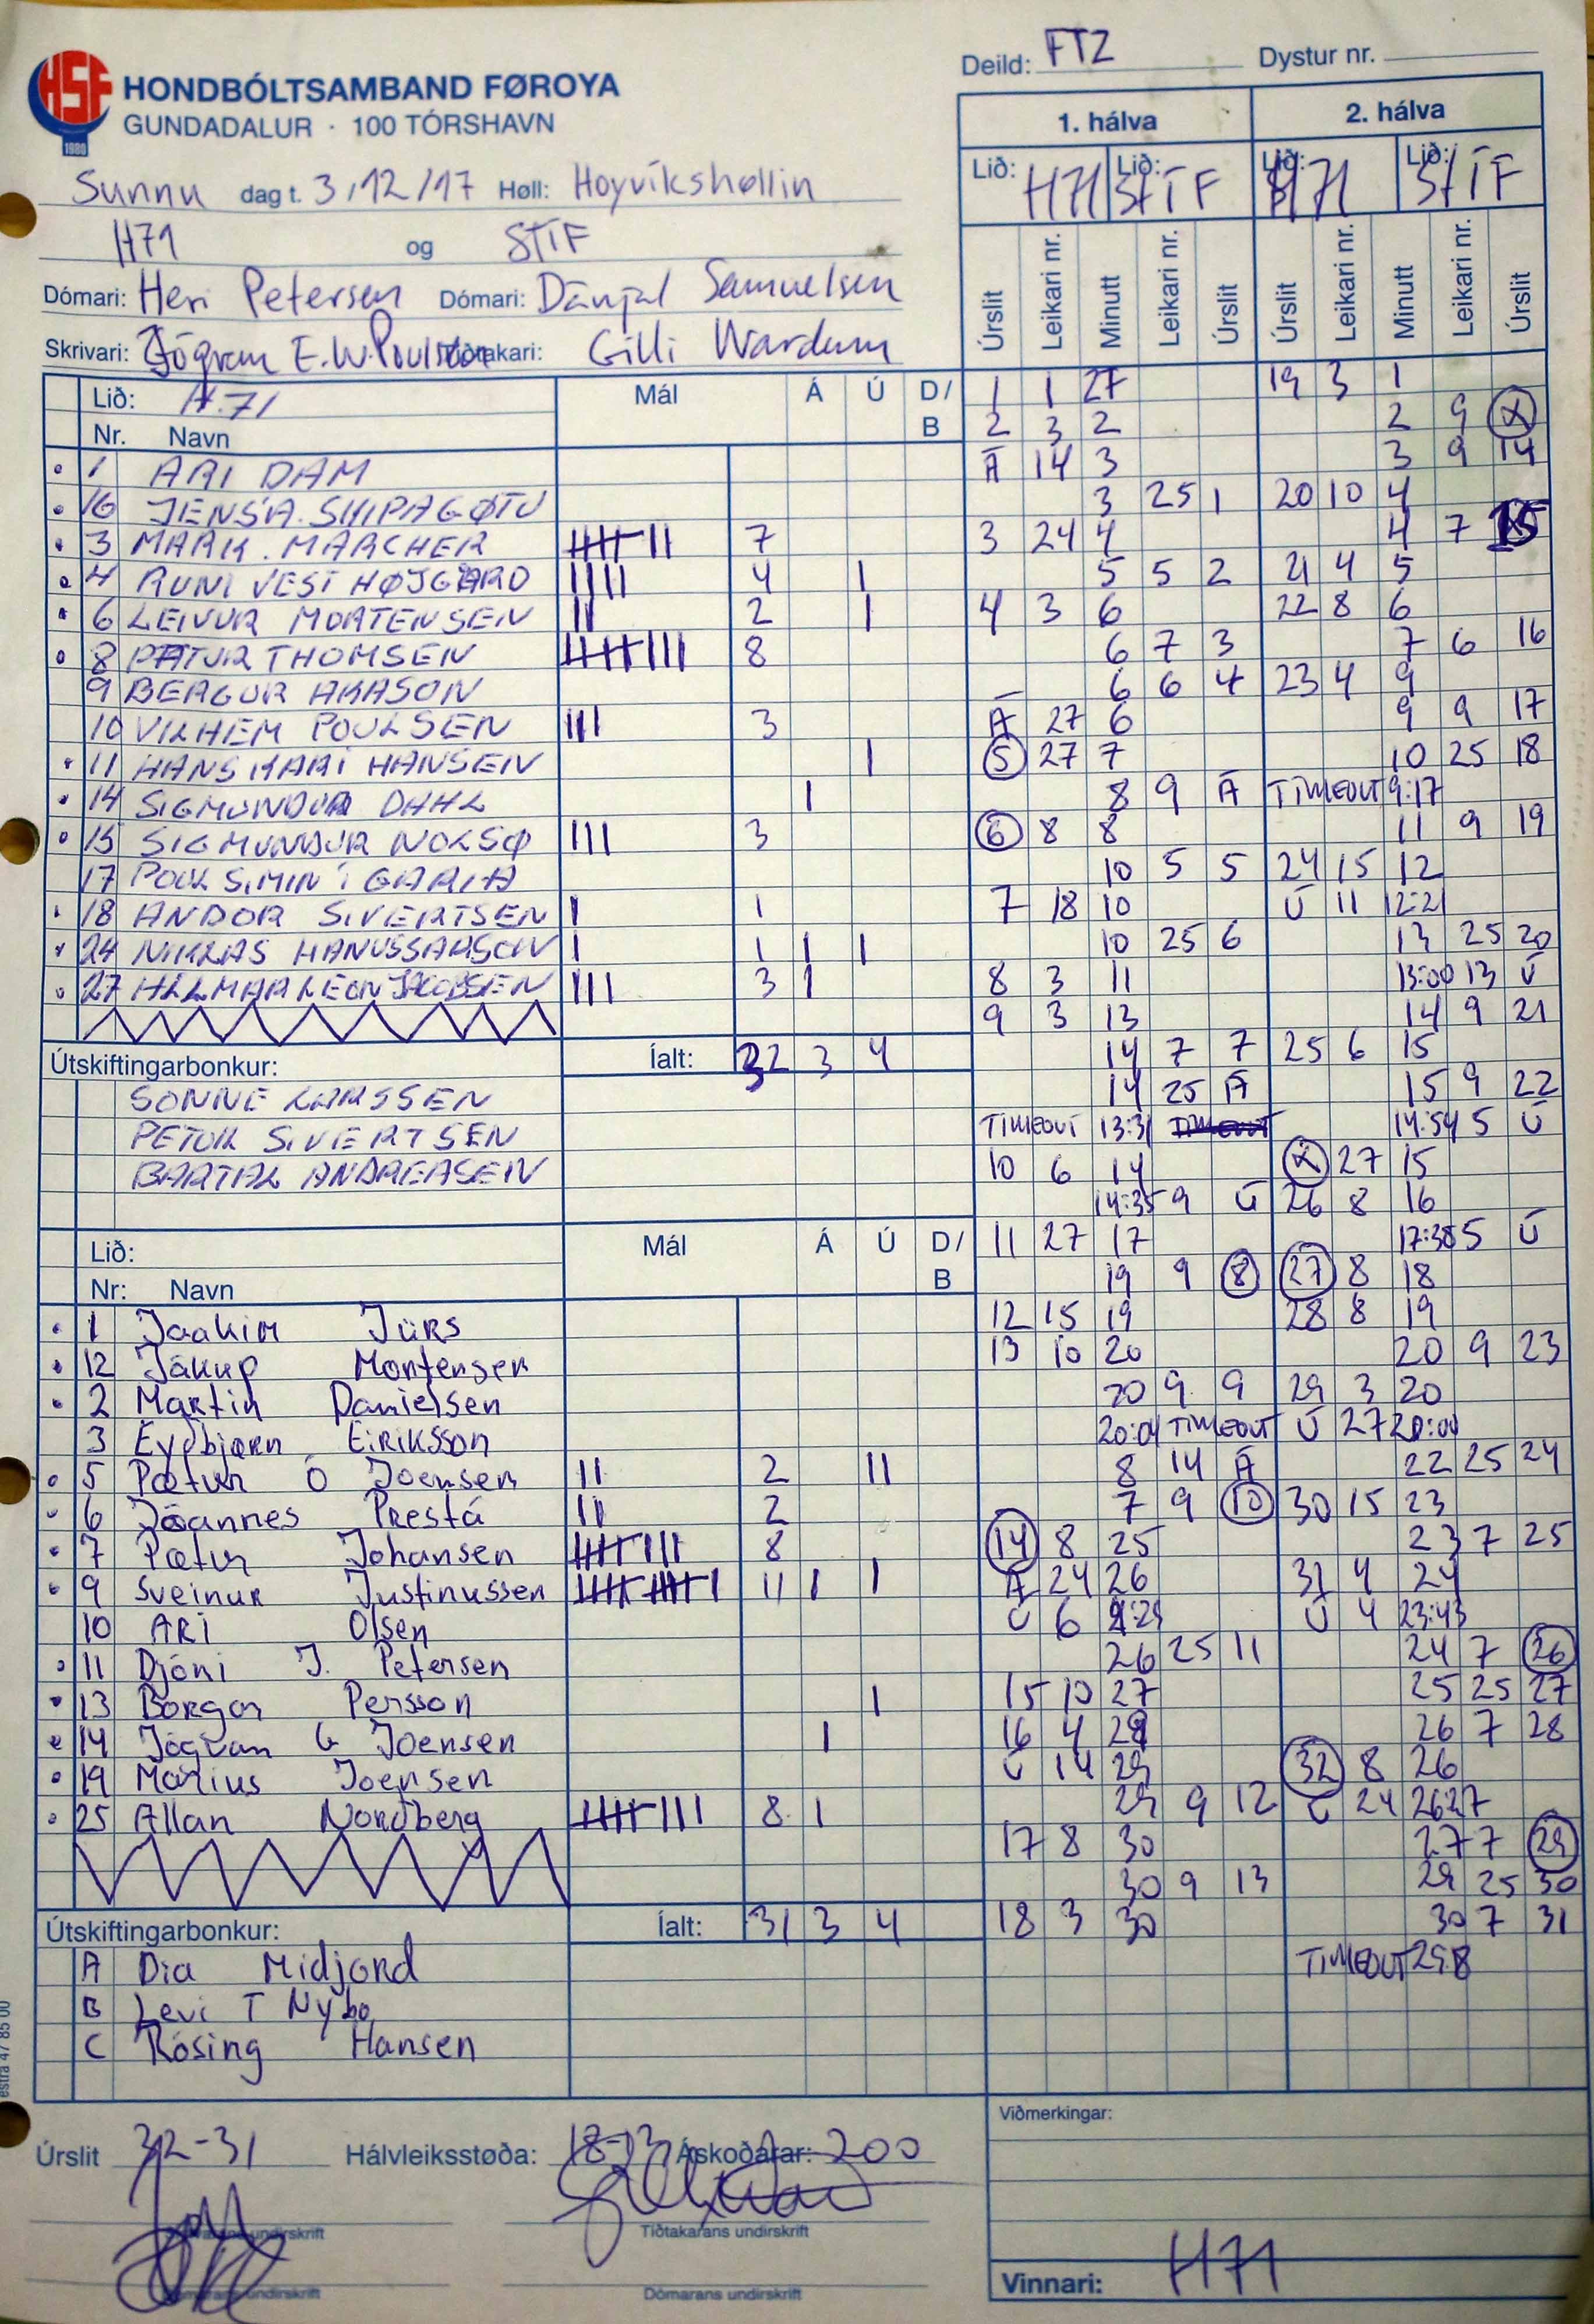 HSF
1980
HONDBÓLTSAMBAND FØROYA
GUNDADALUR · 100 TÓRSHAVN
Deild: FTZ Dystur nr.
Sunnu dag t. 3/12/17 Høll: Hoyvíkshøllin
H71 og STÍF
Dómari: Heri Petersen Dómari: Dánjal Samuelsen
Skrivari: Jógvan E.W.Poulsen Tíðtakari: Gilli Wardum
1. hálva 2. hálva
Lið: H71 Lið: STÍF Lið: H71 Lið: STÍF
Úrslit Leikari nr. Minutt Leikari nr. Úrslit Úrslit Leikari nr. Minutt Leikari nr. Úrslit
Lið: H.71 Mál Á Ú D/B
Nr. Navn
1 ARI DAM
16 JENS A. SKIPAGØTU
3 MARK. MARCHER 7
4 RUNI VEST HØJGARD 4 |
6 LEIVUR MORTENSEN 2 |
8 PÆTUR THOMSEN 8
9 BERGUR AKASON
10 VILHEM POULSEN 3
11 HANS KARI HANSEN |
14 SIGMUNDUR DAHL |
15 SIGMUNDUR NOLSØ 3
17 POUL SIMIN Í GARÐA
18 ANDOR SIVERTSEN 1
24 NIKLAS HANUSSARSON 1 | |
27 HILMAR LEON JACOBSEN 3 |
Útskiftingarbonkur: Íalt: 32 3 4
SONNE LARSSEN
PETUR SIVERTSEN
BARTAL ANDREASEN
Lið: Mál Á Ú D/B
Nr: Navn
1 Jaakim Jürs
12 Jákup Mortensen
2 Martin Danielsen
3 Eyðbjørn Eiriksson
5 Pætur Ó Joensen 2 ||
6 Jóannes Prestá 2
7 Pætur Johansen 8
9 Sveinur Justinussen 11 | |
10 ARI Olsen
11 Djóni J. Petersen
13 Børgar Persson |
14 Jógvan G Joensen |
19 Marius Joensen
25 Allan Norðberg 8 |
Útskiftingarbonkur: Íalt: 31 3 4
A Dia Midjord
B Levi T Nybo
C Rósing Hansen
1 1 27 19 3 1
2 3 2 2 9 X
Á 14 3 3 9 14
3 25 1 20 10 4
3 24 4 4 7 15
5 5 2 21 4 5
4 3 6 22 8 6
6 7 3 7 6 16
6 6 4 23 4 9
Á 27 6 9 9 17
5 27 7 10 25 18
8 9 Á TIMEOUT 9:17
6 8 8 11 9 19
10 5 5 24 15 12
7 18 10 Ú 11 12:21
10 25 6 13 25 20
8 3 11 13:00 13 Ú
9 3 13 14 9 21
14 7 7 25 6 15
14 25 Á 15 9 22
TIMEOUT 13:31 14:54 5 Ú
10 6 14 X 27 15
14:35 9 Ú 26 8 16
11 27 17 17:38 5 Ú
19 9 8 27 8 18
12 15 19 28 8 19
13 10 20 20 9 23
20 9 9 29 3 20
20:01 TIMEOUT Ú 27
8 14 Á 22 25 24
7 9 10 30 15 23
14 8 25 23 7 25
Á 24 26 31 4 24
Ú 6 Ú 4 23:43
26 25 11 24 7 26
15 10 27 25 25 27
16 4 28 26 7 28
Ú 14 29 32 8 26
29 9 12 Ú 24 2627
17 8 30 27 7 29
30 9 13 29 25 30
18 3 30 30 7 31
TIMEOUT
Úrslit 32-31 Hálvleiksstøða: 18-13 Áskoðarar: 200
Viðmerkingar:
Tíðtakarans undirskrift
Dómarans undirskrift Dómarans undirskrift
Vinnari: H71